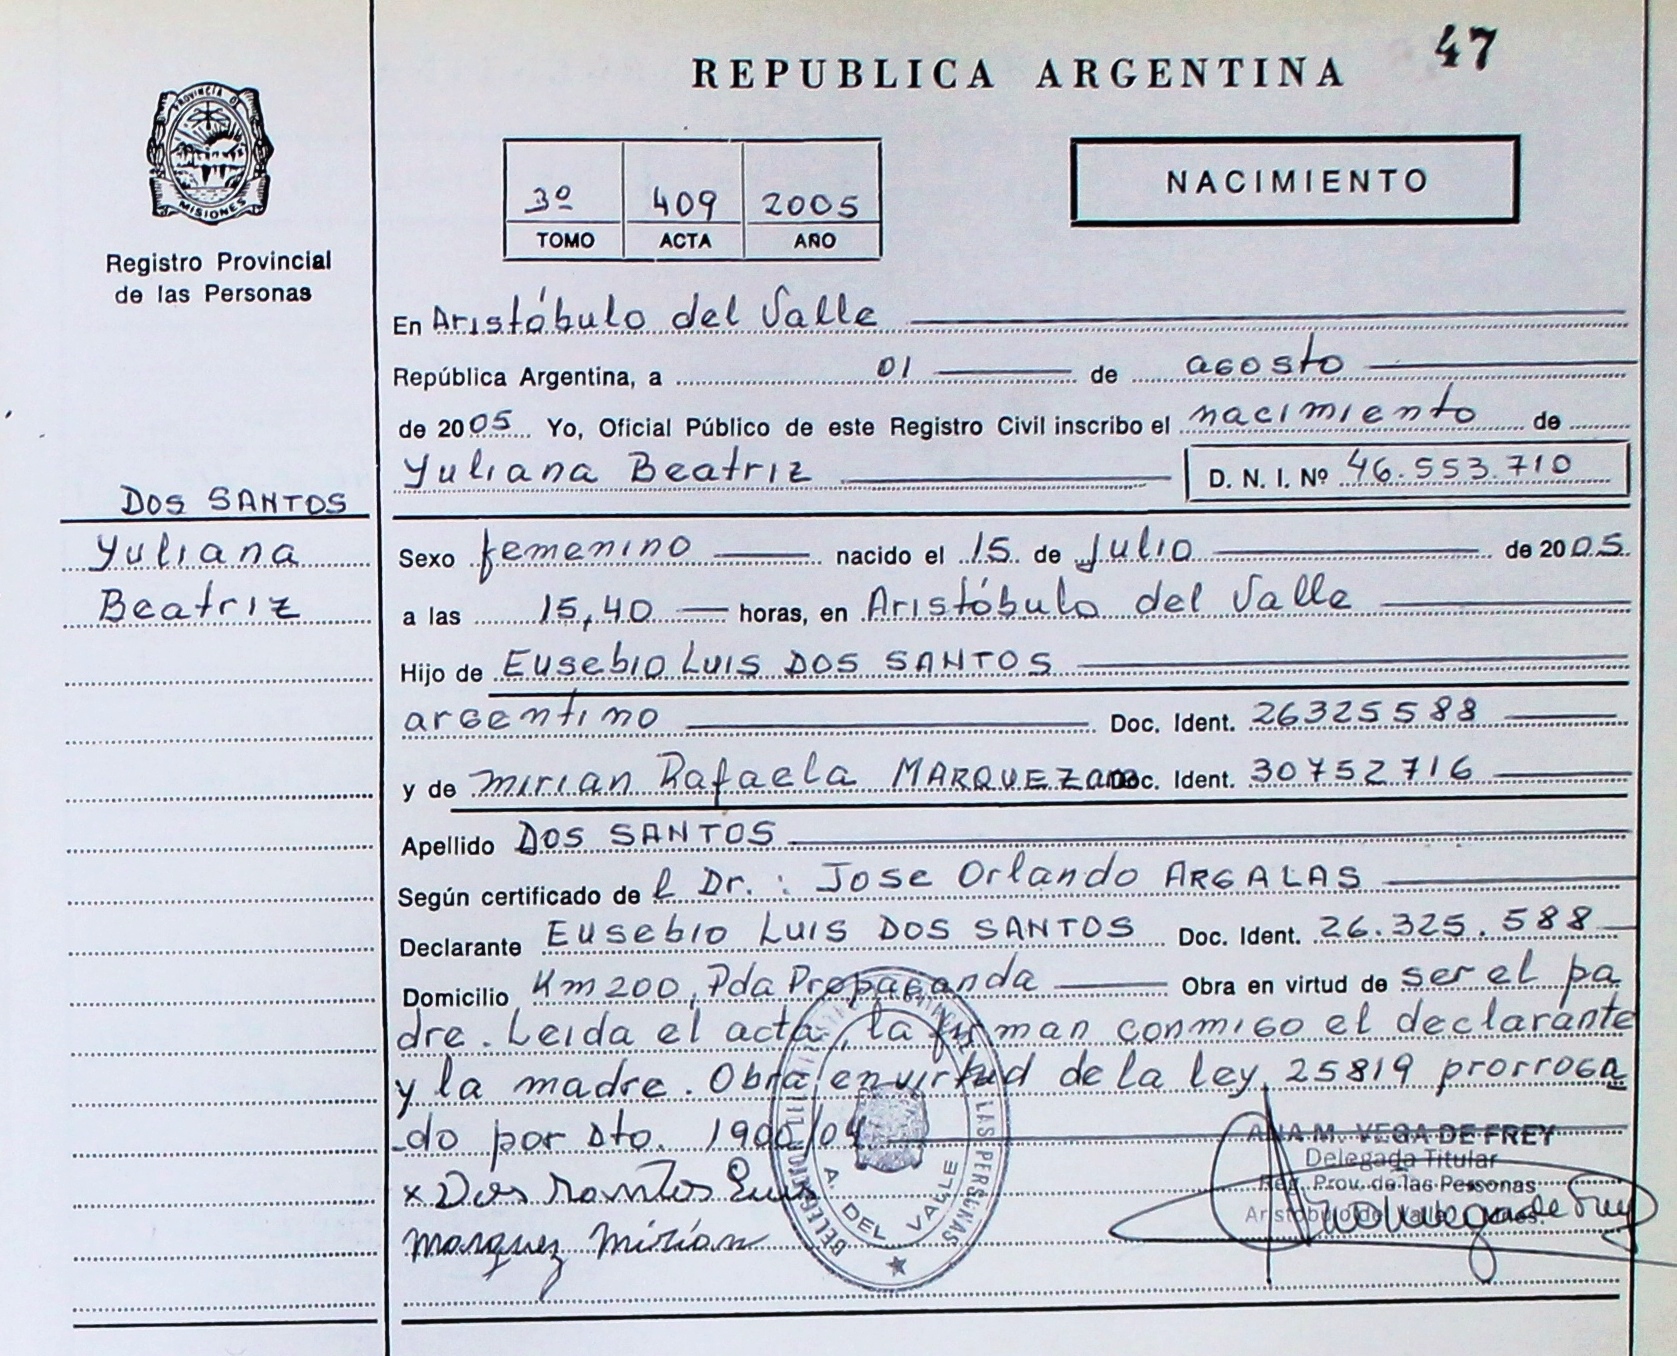 47
REPUBLICA ARGENTINA
PROVINCIA DE
MISIONES
Registro Provincial
de las Personas
3º 409 2005
TOMO ACTA AÑO
NACIMIENTO
En Aristóbulo del Valle
República Argentina, a 01 de agosto
de 2005 Yo, Oficial Público de este Registro Civil inscribo el nacimiento de
Yuliana Beatriz D. N. I. Nº 46.553.710
DOS SANTOS
Yuliana
Beatriz
Sexo femenino nacido el 15 de Julio de 2005
a las 15,40 horas, en Aristóbulo del Valle
Hijo de Eusebio Luis DOS SANTOS
argentino Doc. Ident. 26325588
y de Mirian Rafaela MARQUEZ Doc. Ident. 30752716
Apellido DOS SANTOS
Según certificado de l Dr.: Jose Orlando ARGALAS
Declarante Eusebio Luis DOS SANTOS Doc. Ident. 26.325.588
Domicilio Km 200, Pda Propaganda Obra en virtud de ser el pa
dre. Leida el acta, la firman conmigo el declarante
y la madre. Obra en virtud de la ley 25819 prorroga
do por Dto. 1900/04
x Dos Santos Luis
Marquez Mirian
A. DEL VALLE
LAS PERSONAS
ANA M. VEGA DE FREY
Delegada Titular
Reg. Prov. de las Personas
Aristóbulo del Valle Mnes.